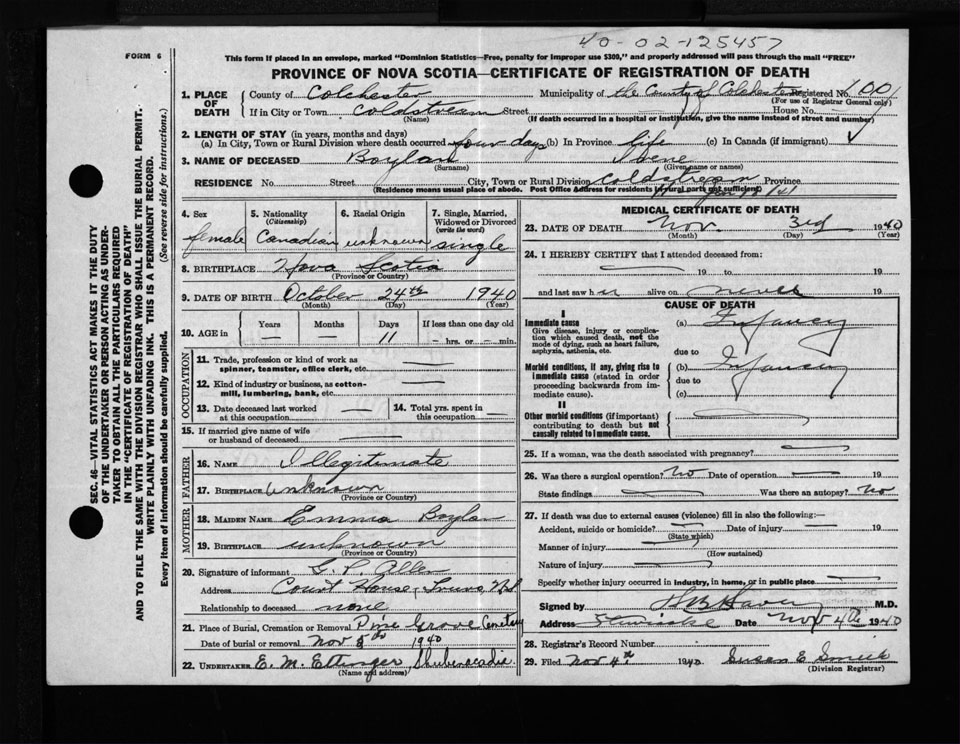 40-02-125457
FORM 6
This form if placed in an envelope, marked "Dominion Statistics—Free, penalty for improper use $300," and properly addressed will pass through the mail "FREE"
PROVINCE OF NOVA SCOTIA—CERTIFICATE OF REGISTRATION OF DEATH
1. PLACE OF DEATH
County of Colchester Municipality of the County of Colchester Registered No. 100
(For use of Registrar General only)
If in City or Town Coldstream Street House No.
(Name) (If death occurred in a hospital or institution, give the name instead of street and number)
2. LENGTH OF STAY (in years, months and days)
(a) In City, Town or Rural Division where death occurred four days (b) In Province life (c) In Canada (if immigrant)
3. NAME OF DECEASED Boylan Irene
(Surname) (Given name or names)
RESIDENCE No. Street City, Town or Rural Division Coldstream Province
(Residence means usual place of abode. Post Office Address for residents in rural parts not sufficient)
4. Sex female
5. Nationality (Citizenship) Canadian
6. Racial Origin unknown
7. Single, Married, Widowed or Divorced (write the word) single
8. BIRTHPLACE Nova Scotia
(Province or Country)
9. DATE OF BIRTH October 24th 1940
(Month) (Day) (Year)
10. AGE in Years — Months — Days 11 If less than one day old — hrs. or — min.
OCCUPATION
11. Trade, profession or kind of work as spinner, teamster, office clerk, etc. —
12. Kind of industry or business, as cotton-mill, lumbering, bank, etc. —
13. Date deceased last worked at this occupation —
14. Total yrs. spent in this occupation —
15. If married give name of wife or husband of deceased —
FATHER
16. NAME Illegitimate
17. BIRTHPLACE unknown
(Province or Country)
MOTHER
18. MAIDEN NAME Emma Boylan
19. BIRTHPLACE unknown
(Province or Country)
20. Signature of informant
Address Court House, Truro, NS
Relationship to deceased none
21. Place of Burial, Cremation or Removal Pine Grove Cemetery
Date of burial or removal Nov 5th 1940
22. UNDERTAKER E. M. Ettinger Shubenacadie
(Name and address)
MEDICAL CERTIFICATE OF DEATH
23. DATE OF DEATH Nov. 3rd 1940
(Month) (Day) (Year)
24. I HEREBY CERTIFY that I attended deceased from
— 19 to — 19
and last saw her alive on never 19
CAUSE OF DEATH
I
Immediate cause
Give disease, injury or complication which caused death, not the mode of dying, such as heart failure, asphyxia, asthenia, etc.
(a) Infancy
due to
Morbid conditions, if any, giving rise to immediate cause (stated in order proceeding backwards from immediate cause).
(b) Infancy
due to
(c)
II
Other morbid conditions (if important) contributing to death but not causally related to immediate cause.
25. If a woman, was the death associated with pregnancy? —
26. Was there a surgical operation? No Date of operation — 19
State findings — Was there an autopsy? No
27. If death was due to external causes (violence) fill in also the following:—
Accident, suicide or homicide? — Date of injury — 19
(State which)
Manner of injury —
(How sustained)
Nature of injury —
Specify whether injury occurred in industry, in home, or in public place —
Signed by M.D.
Address Stewiacke Date Nov 4th 1940
28. Registrar's Record Number
29. Filed Nov 4th 1940 Susan E
(Division Registrar)
SEC. 46—VITAL STATISTICS ACT MAKES IT THE DUTY
OF THE UNDERTAKER OR PERSON ACTING AS UNDER-
TAKER TO OBTAIN ALL THE PARTICULARS REQUIRED
IN THE "CERTIFICATE OF REGISTRATION OF DEATH"
AND TO FILE THE SAME WITH THE DIVISION REGISTRAR WHO SHALL ISSUE THE BURIAL PERMIT.
WRITE PLAINLY WITH UNFADING INK. THIS IS A PERMANENT RECORD.
Every item of information should be carefully supplied. (See reverse side for instructions.)